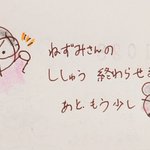 ねずみさんの
ししゅう 終わらせ
あと、もう少し